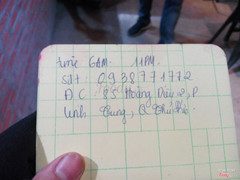 6AM - 11PM
sđt : 0938771772
ĐC 85 Hoàng Diệu 2, P
Linh Trung, Q Thủ Đức